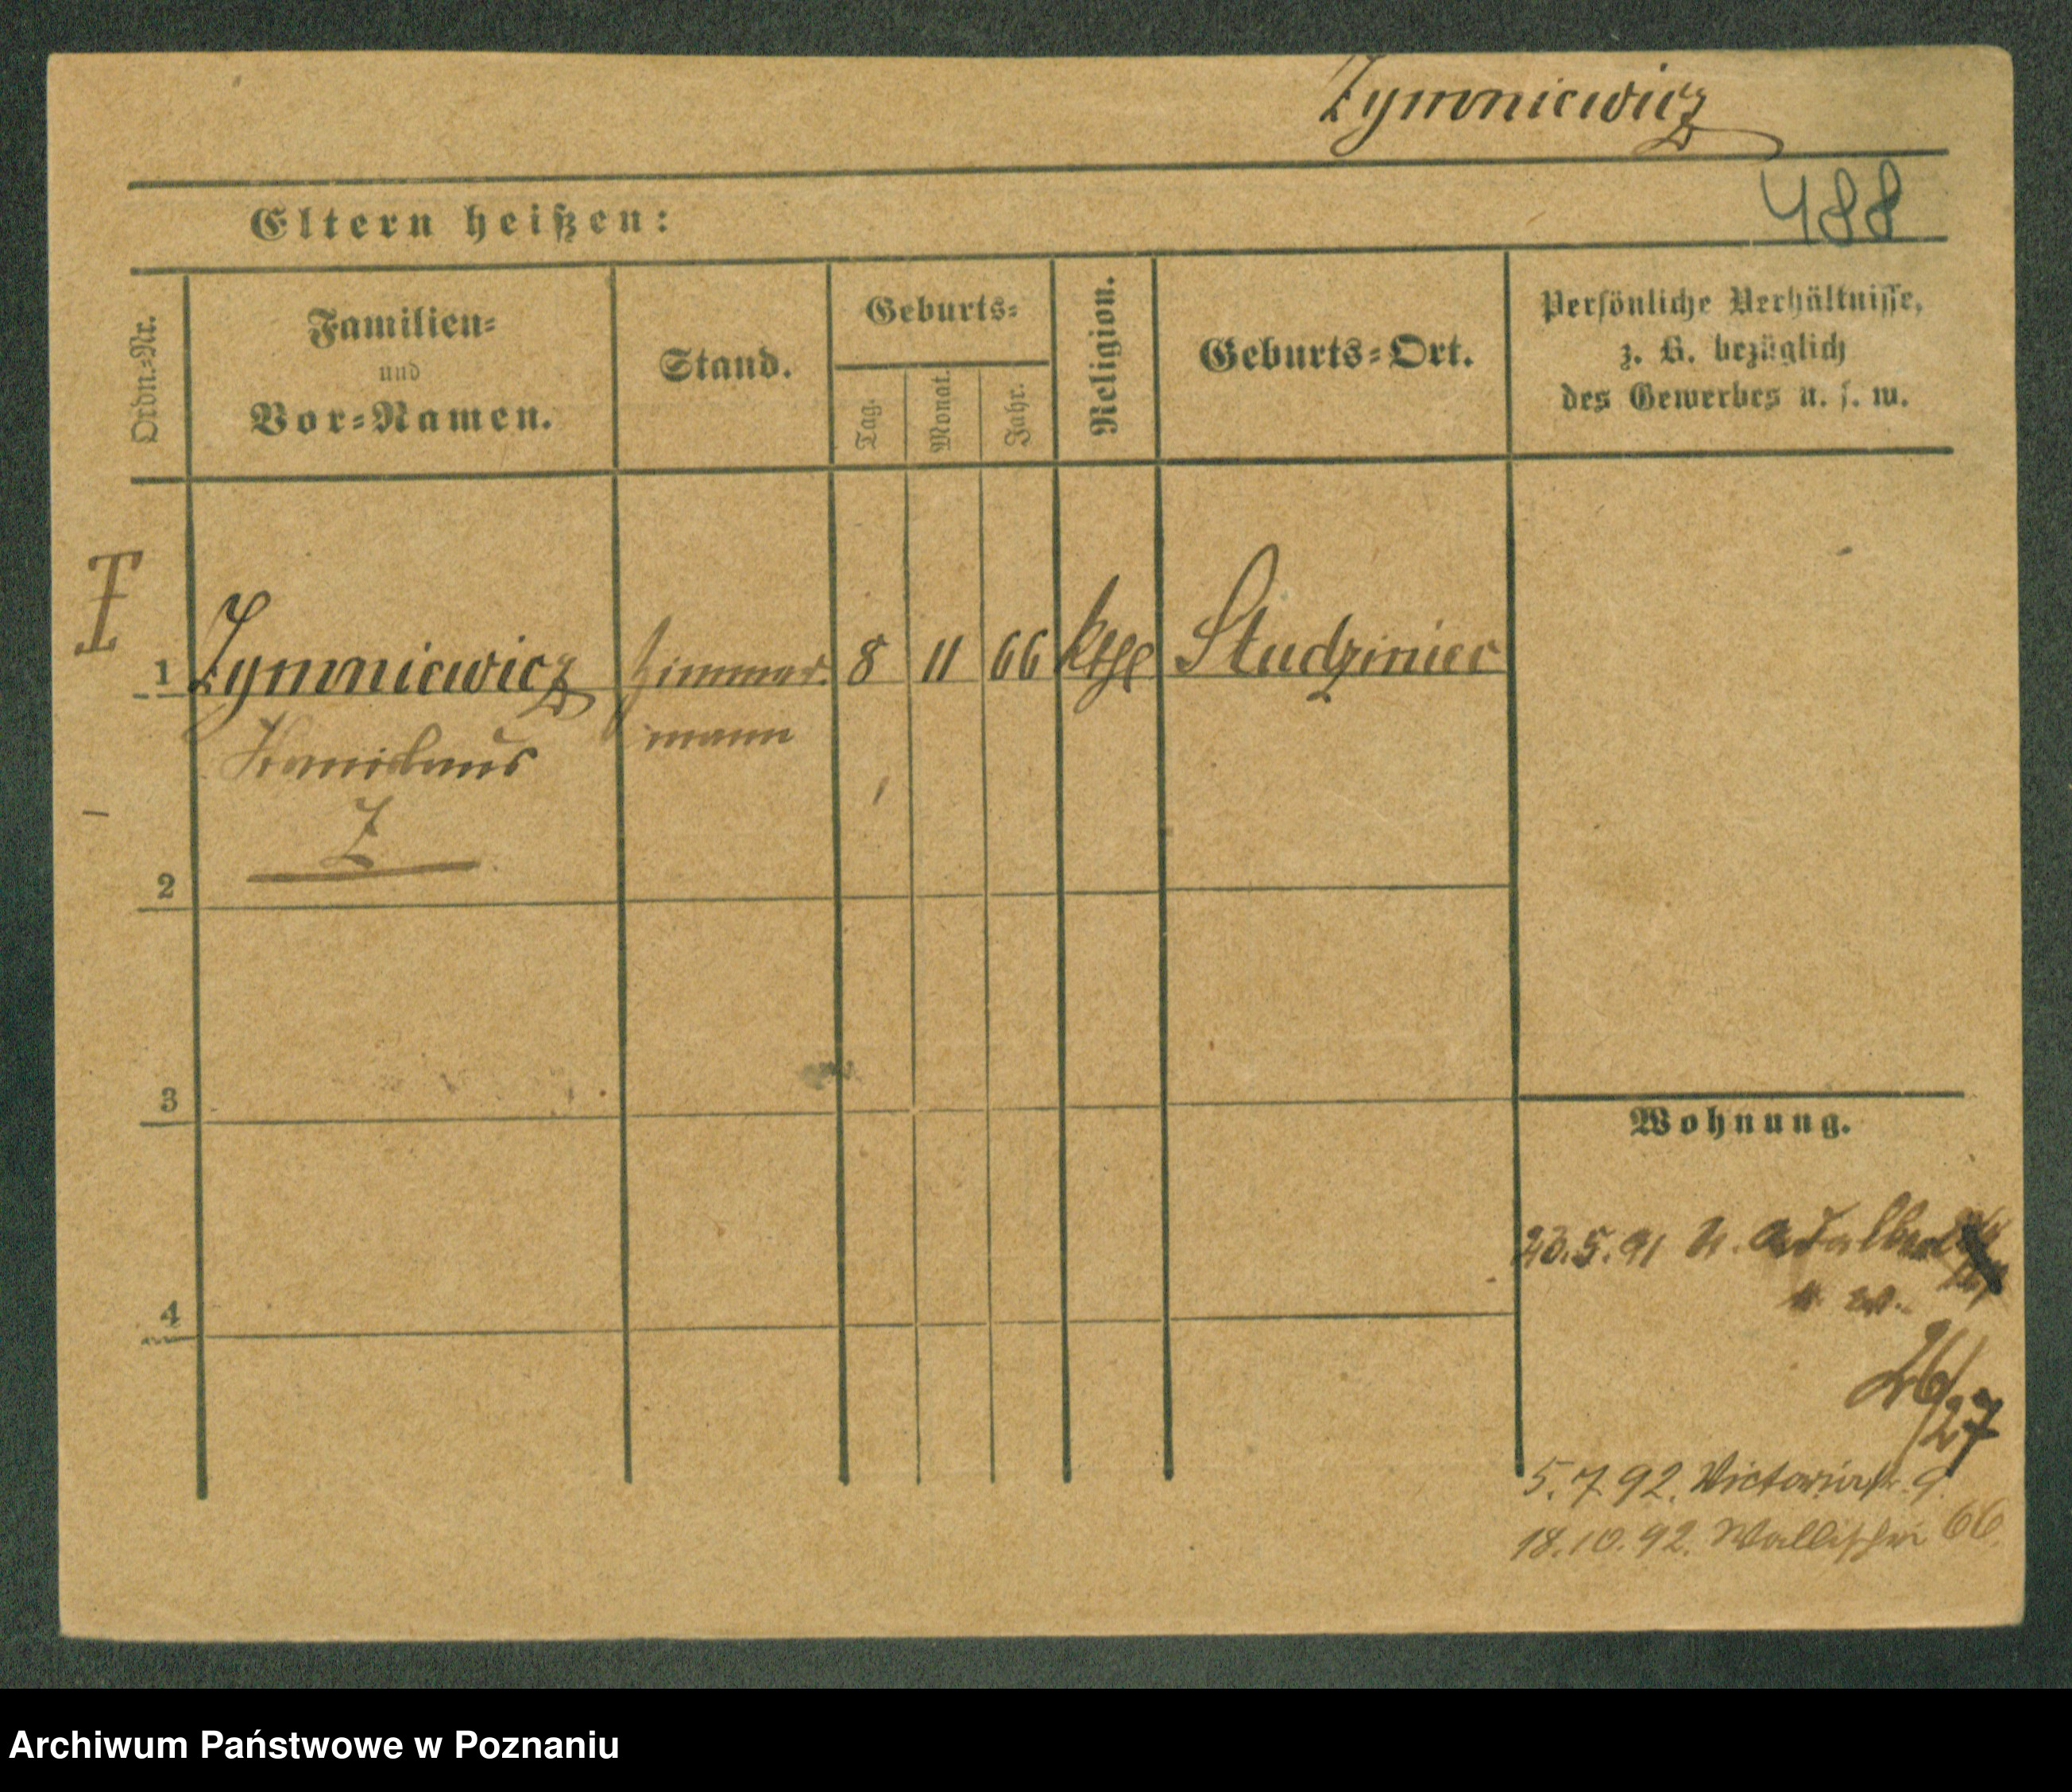 Zymniewicz
488
Eltern heißen:
Ordn.-Nr.
Familien-
und
Vor-Namen.
Stand.
Geburts-
Tag.
Monat.
Jahr.
Religion.
Geburts-Ort.
Persönliche Verhältnisse,
z. B. bezüglich
des Gewerbes u. s. w.
I
1 Zymniewicz Zimmer- 8 11 66 kthl Studziniec
Stanislaus mann
Z
2
3
Wohnung.
23.5.91 Adalbert
4
26/27
5.7.92. Victoriastr. 9
18.10.92. Wallischei 66.
Archiwum Państwowe w Poznaniu